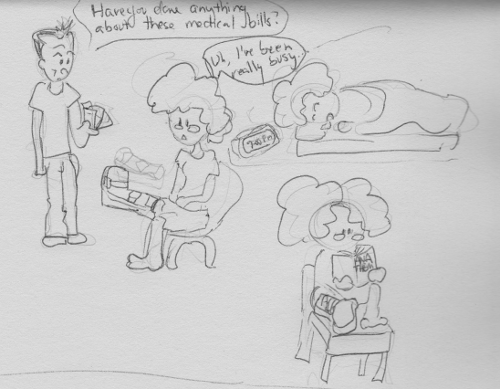 Have you done anything
about these medical bills?
Uh, I've been
really busy.